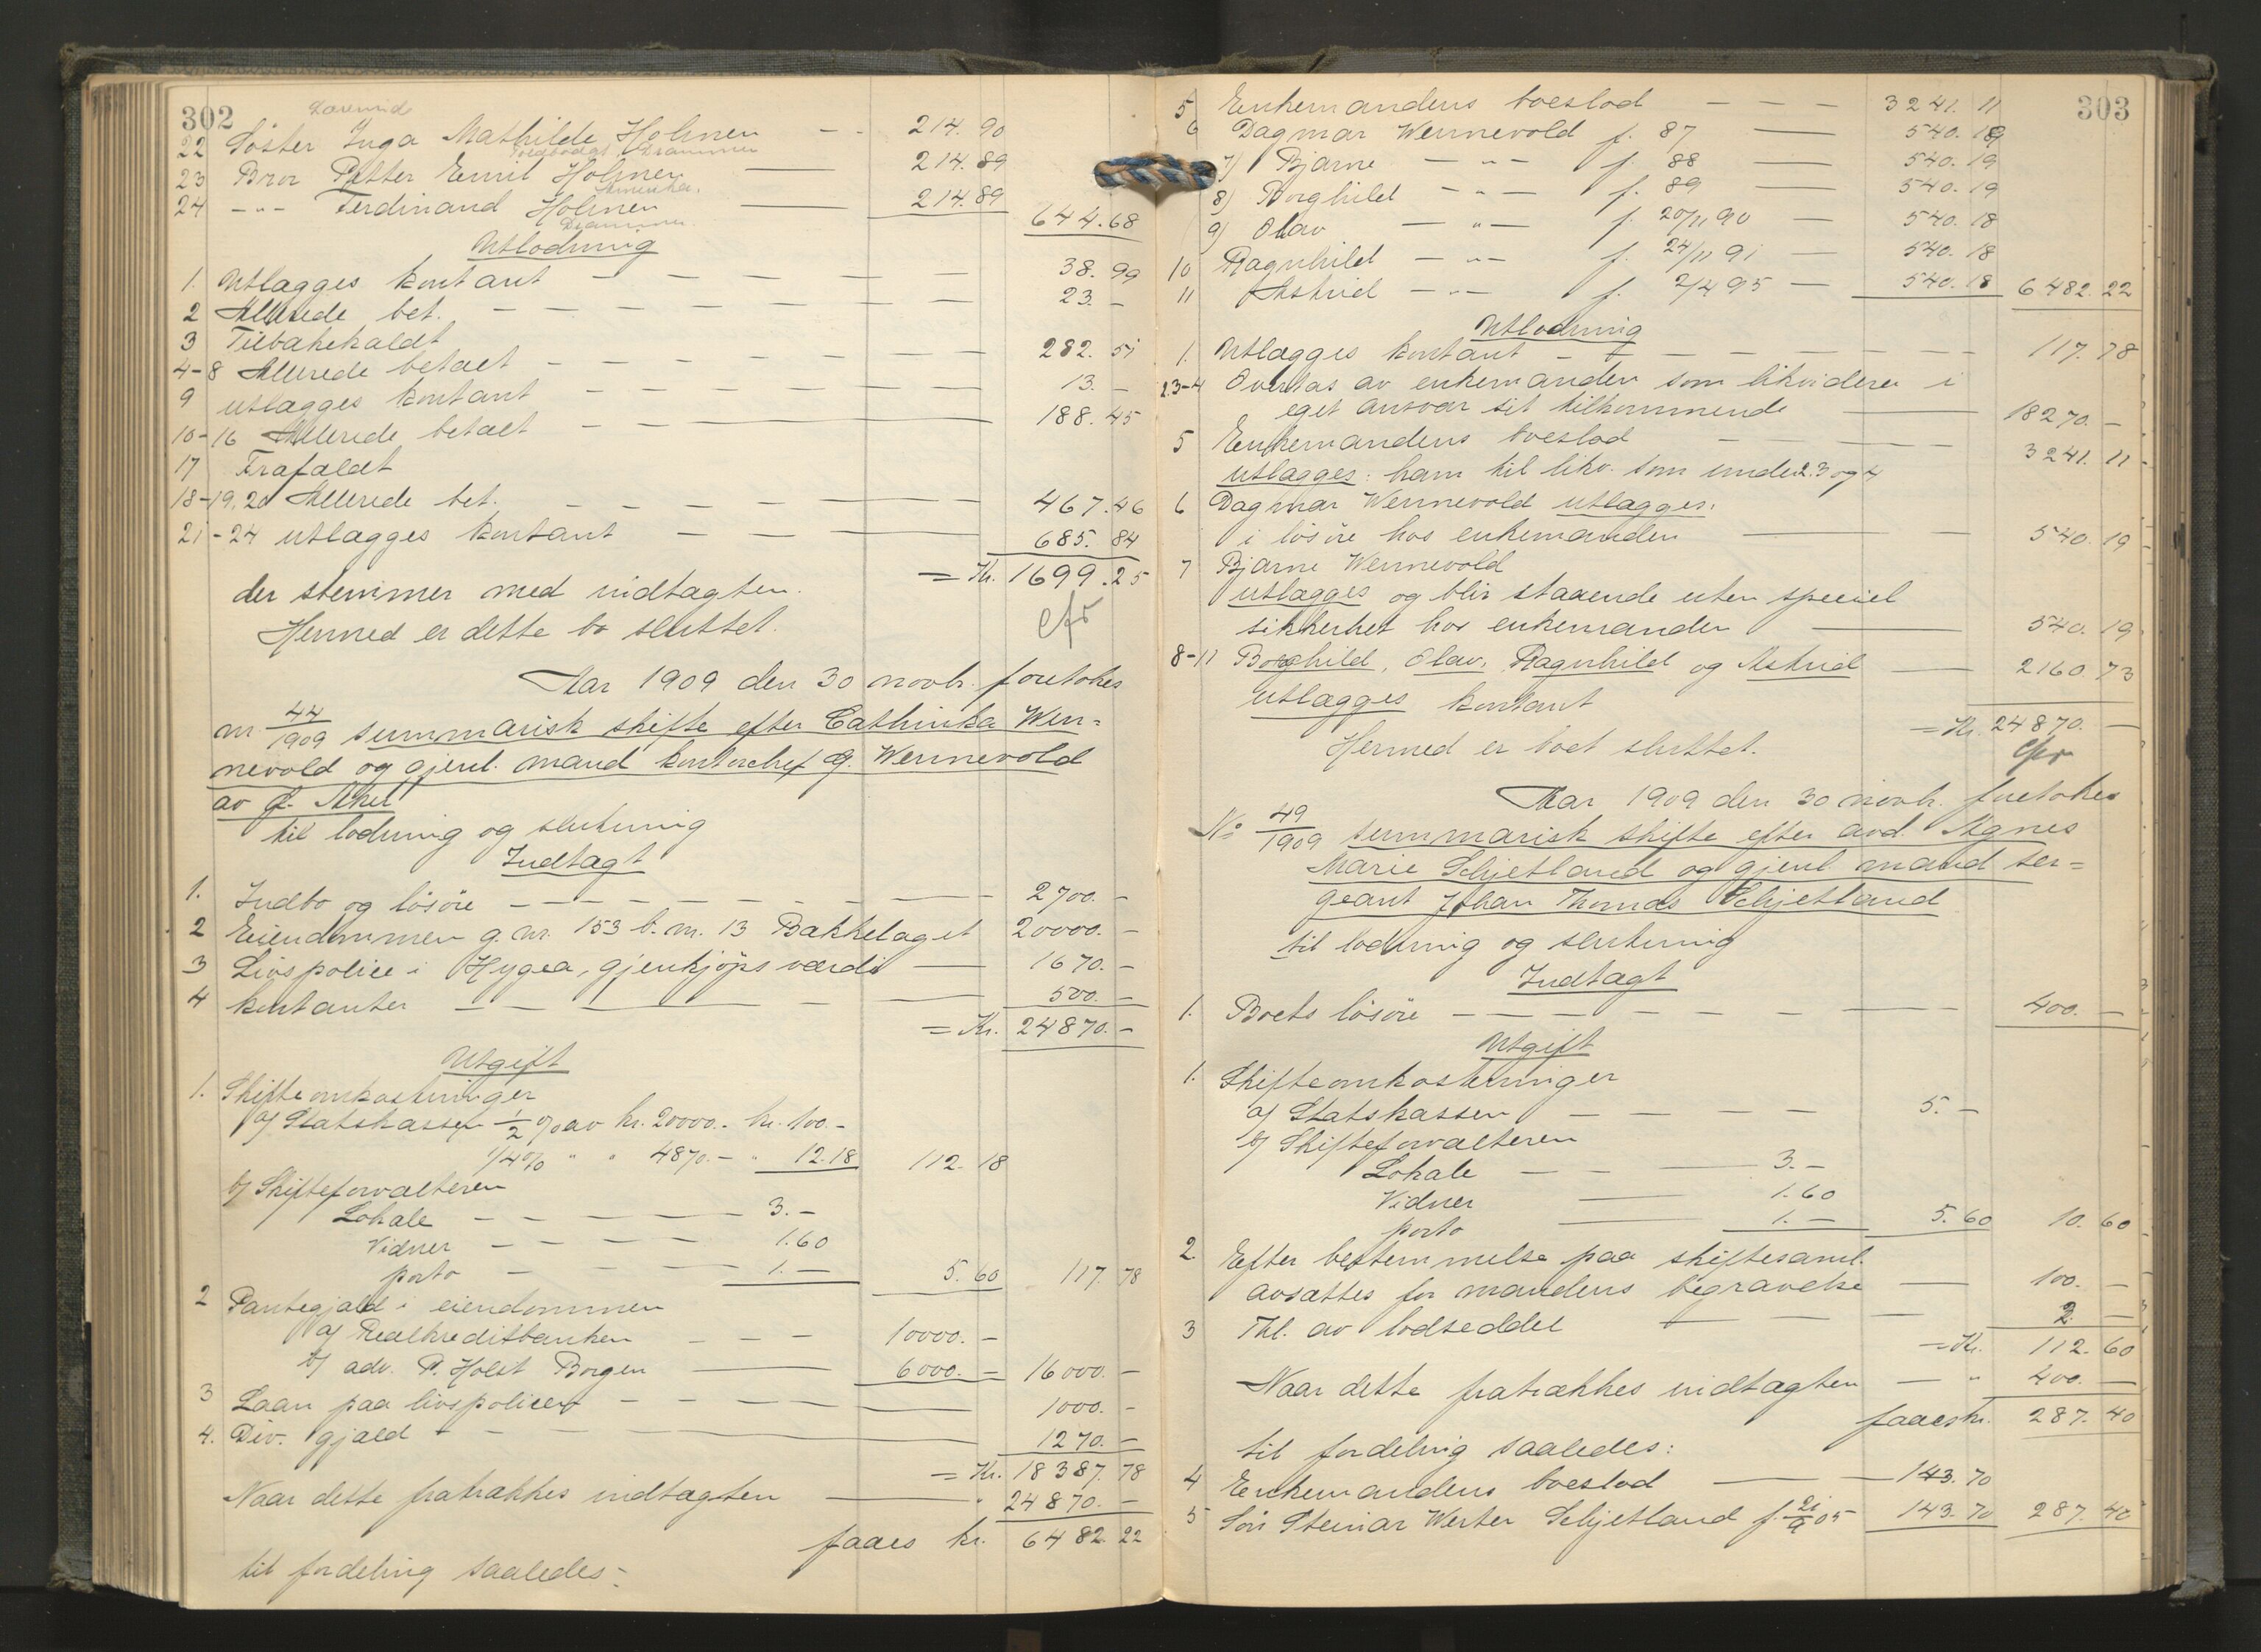 302
22 Søster Inga Mathilde Holmen — 214.90
Toldbodgt. Drammen
23 Bror Petter Emil Holmen — 214.89
Amerika.
24 —"— Ferdinand Holmen — 214.89 644.68
Drammen.
Utlodning
1. Utlægges kontant — 38.99
2 Allerede bet. — 23.—
3 Tilbakekaldt
4-8 Allerede betalt — 282.51
9 utlægges kontant — 13.—
10-16 Allerede betalt — 188.45
17 Frafaldt
18-19.20 Allerede bet. — 467.46
21-24 utlægges kontant — 685.84
= Kr. 1699.25
der stemmer med indtægten.
Hermed er dette bo sluttet.
Aar 1909 den 30 novbr. foretokes
nr 44/1909 summarisk skifte efter Cathinka Wen=
nevold og gjenl. mand kontorchef G. Wennevold
av Ø. Aker
til lodning og slutning
Indtægt
1. Indbo og løsøre — 2700.—
2 Eiendommen g. nr. 153 b. nr. 13 Bakkelaget 20000.—
3 Livspolice i Hygea, gjenkjøpsværdi — 1670.—
4 kontanter — 500.—
= Kr. 24870.—
Utgift
1. Skifteomkostninger
a/ Statskassen 1/2 % av kr. 20000.- kr. 100.-
1/4 % " " 4870.— " 12.18 112.18
b/ Skifteforvalteren
Lokale — 3.—
Vidner — 1.60
porto — 1.— 5.60 117.78
2 Pantegjæld i eiendommen
a/ Realkreditbanken — 10000.—
b/ adv. P. Holst Borgen — 6000.— 16000.—
3 Laan paa livspolicen — 1000.—
4. Div. gjæld — 1270.—
= Kr. 18387.78
Naar dette fratrækkes indtægten — " 24870.—
faaes kr. 6482.22
til fordeling saaledes:
303
5 Enkemandens boeslod — 3241.11
6 Dagmar Wennevold f. 87 — 540.19
7) Bjarne —"— f. 88 — 540.19
8) Borghild —"— f. 89 — 540.19
9) Olav —"— f. 20/11 90 — 540.18
10 Ragnhild —"— f. 24/11 91 — 540.18
11 Astrid —"— f. 2/4 95 — 540.18 6482.22
Utlodning
1. Utlægges kontant — 117.78
2.3-4 Overtas av enkemanden som likviderer i
eget ansvar sit tilkommende — 18270.—
5 Enkemandens boeslod — 3241.11
utlægges: ham til likv. som under 2.3 og 4
6 Dagmar Wennevold utlægges:
i løsøre hos enkemanden — 540.19
7 Bjarne Wennevold
utlægges og blir staaende uten speciel
sikkerhet hos enkemanden — 540.19
8-11 Borghild, Olav, Ragnhild og Astrid — 2160.73
utlægges kontant
= Kr. 24870.—
Hermed er boet sluttet.
Aar 1909 den 30 novbr. foretokes
No 49/1909 summarisk skifte efter avd. Agnes
Marie Schjetland og gjenl mand ser=
geant Johan Thomas Schjetland
til lodning og slutning
Indtægt
1. Boets løsøre — 400.—
Utgift
1. Skifteomkostninger
a/ Statskassen — 5.—
b/ Skifteforvalteren
Lokale — 3.—
Vidner — 1.60
porto — 1.— 5.60 10.60
2 Efter bestemmelse paa skiftesaml.
avsættes for mandens begravelse — 100.—
3 Thl. av lodseddel — 2.—
= Kr. 112.60
Naar dette fratrækkes indtægten — " 400.—
faaes kr. 287.40
til fordeling saaledes:
4 Enkemandens boeslod — 143.70
5 Søn Steinar Werter Schjetland f. 21/9 05 143.70 287.40